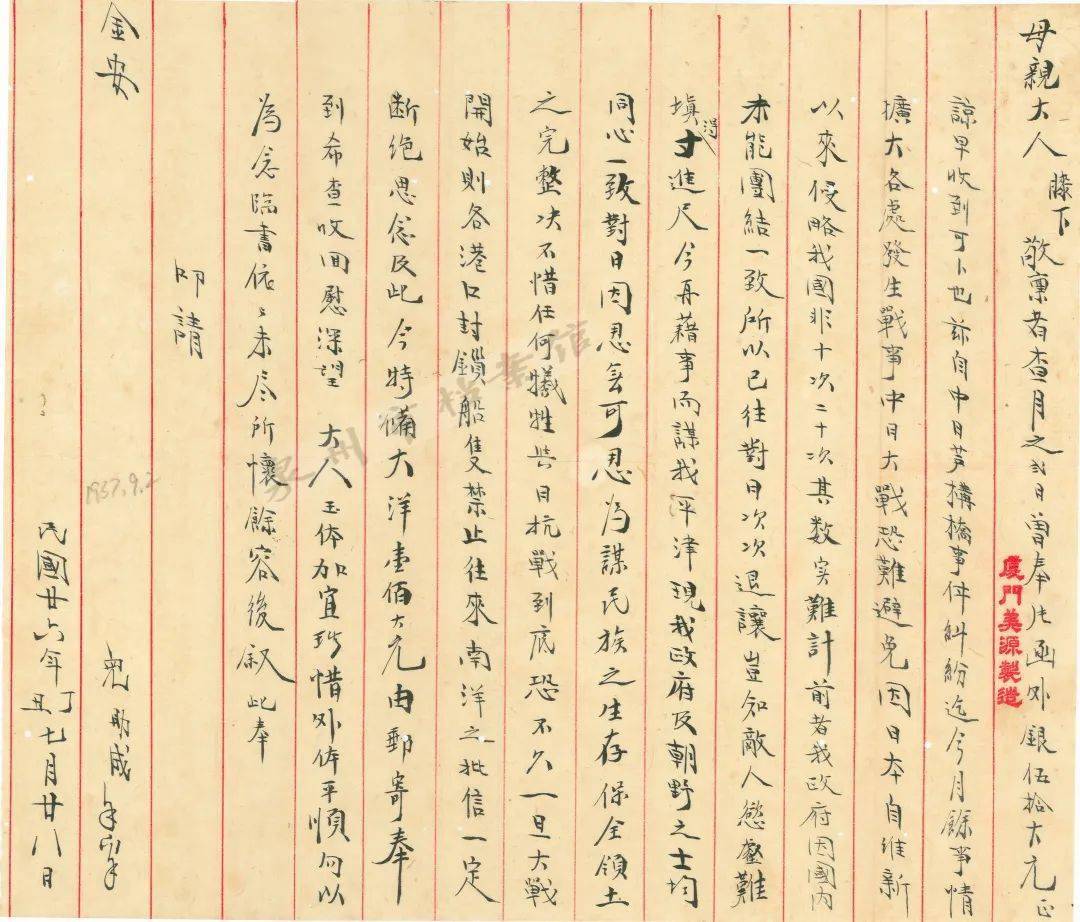 母親大人膝下敬稟者查月之弍日曾奉片函外銀伍拾大元正
諒早收到可卜也玆自中日芦搆橋事件糾紛迄今月餘事情
擴大各處發生戰事中日大戰恐難避免因日本自維新
以來侵略我國非十次二十次其数实難計前者我政府因國内
未能團結一致所以已往對日次次退讓豈知敵人慾壑難
塡得寸進尺今再藉事而謀我平津現我政府及朝野之士均
同心一致對日因忍無可忍为謀民族之生存保全領土
之完整决不惜任何犧牲与日抗戰到底恐不久一旦大戰
開始則各港口封鎖船隻禁止往來南洋之批信一定
断绝思念及此今特備大洋壹佰大元由郵寄奉
到希查收回慰深望大人玉体加宜珎惜外体平順勿以
為念臨書依々未尽所懷餘容後叙此奉
叩請
金安
兒助成
民國廿六年丁丑七月廿八日
1937.9.2
廈門美源製造
泉州市檔案馆